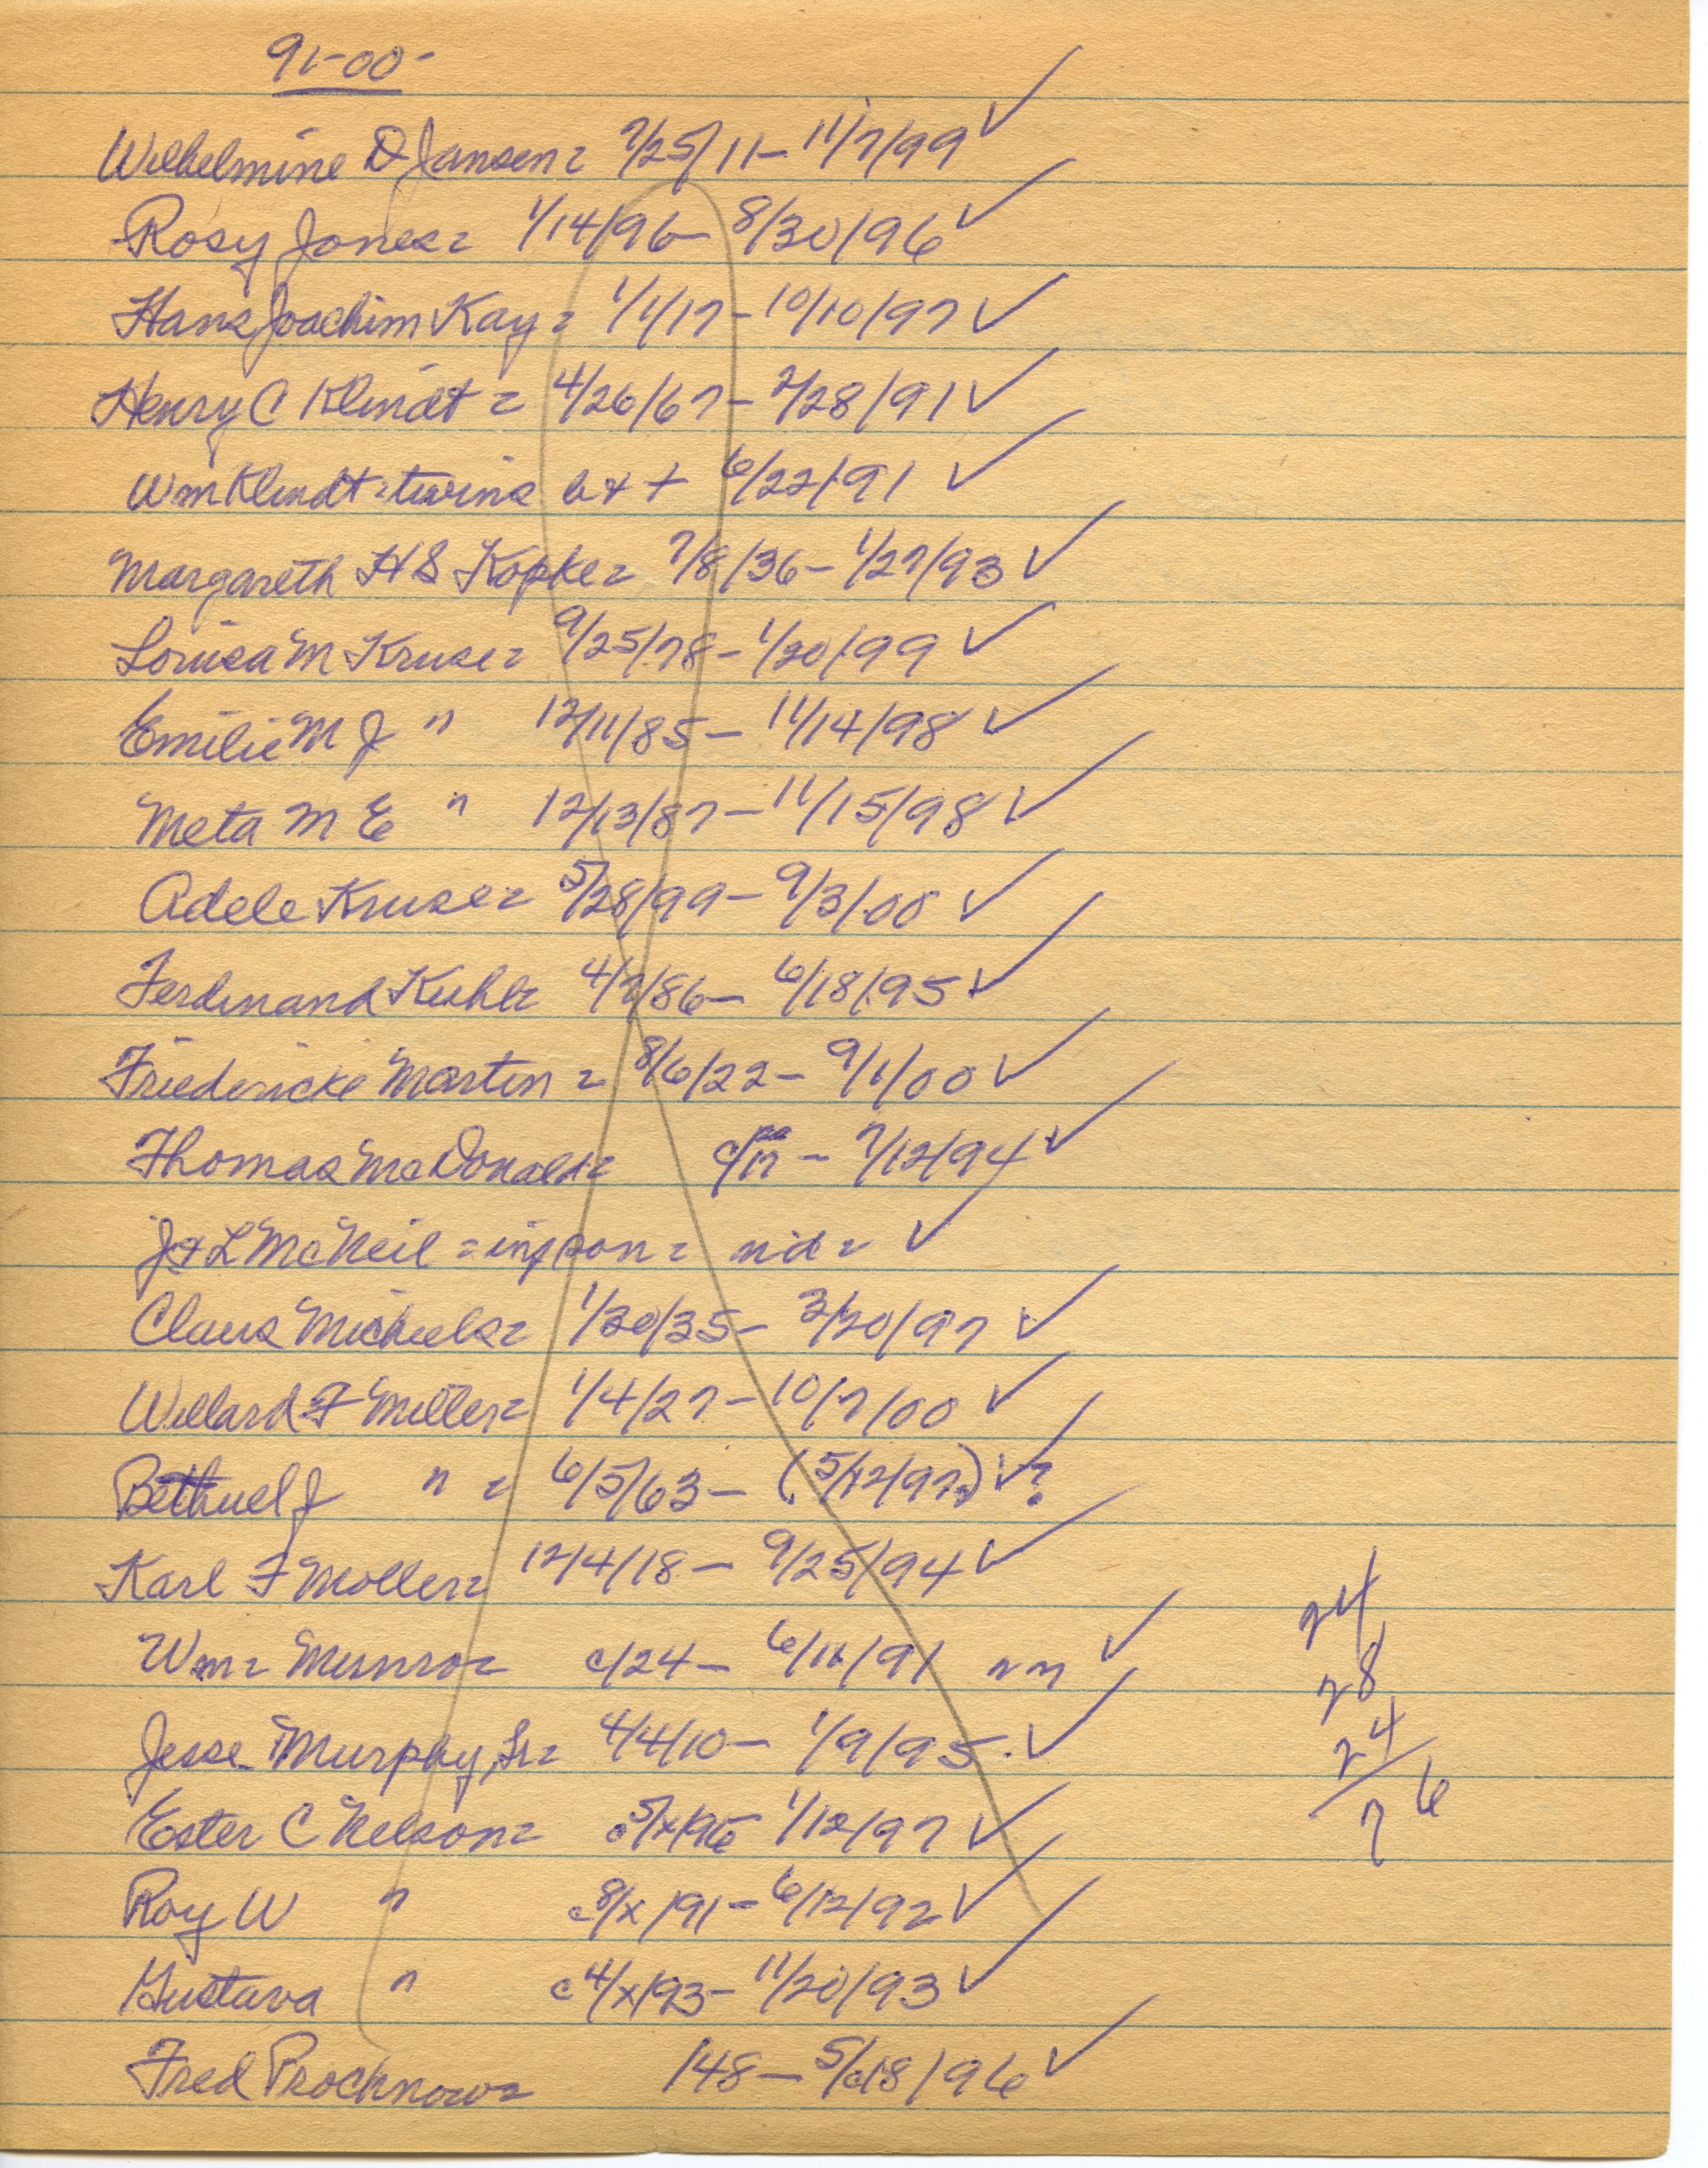 91-00-
Wilhelmine D Jansen = 7/25/11 - 11/7/99 ✓
Rosy Jones = 1/14/96 - 8/30/96 ✓
Hans Joachim Kay = 1/1/17 - 10/10/97 ✓
Henry C Klindt = 4/26/67 - 2/28/91 ✓
Wm Klindt = twins b + + 6/22/91 ✓
Margareth H S Kopke = 7/8/36 - 1/27/93 ✓
Louisa M Kruse = 9/25/78 - 1/20/99 ✓
Emilie M J " 12/11/85 - 11/14/98 ✓
Meta M E " 12/13/87 - 11/15/98 ✓
Adele Kruse = 5/28/99 - 9/3/00 ✓
Ferdinand Kuhl = 4/7/86 - 6/18/95 ✓
Friedericke Martin = 8/6/22 - 9/1/00 ✓
Thomas McDonald = - 7/12/94 ✓
J + L McNeil = inf son = nd = ✓
Claus Michiels = 1/30/35 - 3/20/97 ✓
Willard F Miller = 1/4/27 - 10/7/00 ✓
Bethuel J " = 6/5/63 - (5/12/97) ✓ ?
Karl F Moller = 12/4/18 - 9/25/94 ✓
Wm = Munro = c/24 - 6/11/91 nm ✓
Jesse Murphy, Sr = 4/4/10 - 1/9/95. ✓
Ester C Nelson = c5/x/96 1/12/97 ✓
Roy W " c8/x/91 - 6/12/92 ✓
Gustava " c4/x/93 - 11/20/93 ✓
Fred Prochnow = /48 - 5/18/96 ✓
24
28
24
76